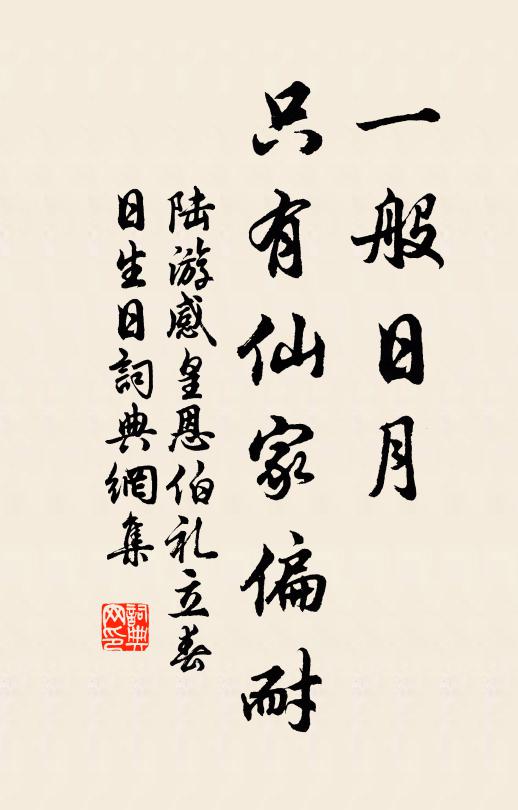 一般日月
只有仙家偏耐
陆游感皇恩伯礼立春
日生日詞典網集
詞典网印